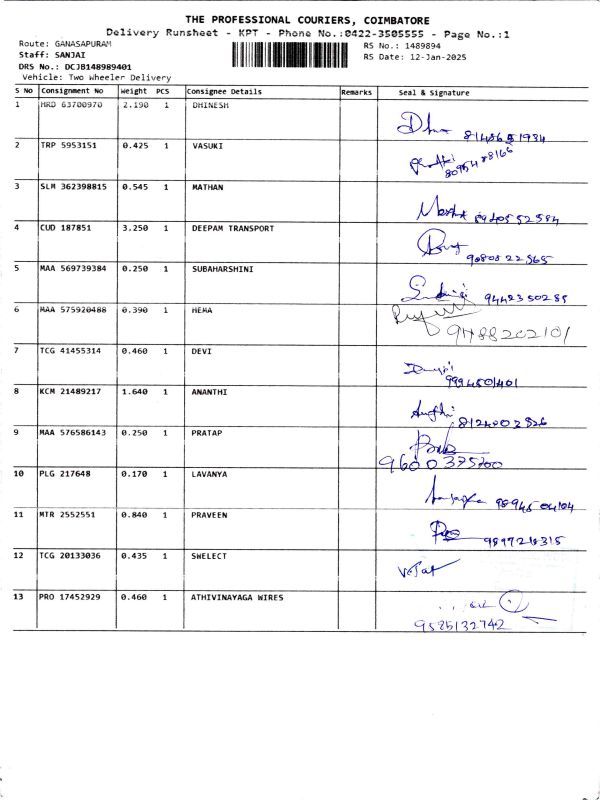 THE PROFESSIONAL COURIERS, COIMBATORE
Delivery Runsheet - KPT - Phone No.:0422-3505555 - Page No.:1
Route: GANASAPURAM
RS No.: 1489894
Staff: SANJAI
RS Date: 12-Jan-2025
DRS No.: DCJB148989401
Vehicle: Two Wheeler Delivery
S No Consignment No Weight PCS Consignee Details Remarks Seal & Signature
1 HRD 63700970 2.190 1 DHINESH
2 TRP 5953151 0.425 1 VASUKI
3 SLM 362398815 0.545 1 MATHAN
4 CUD 187851 3.250 1 DEEPAM TRANSPORT
5 MAA 569739384 0.250 1 SUBAHARSHINI
9442350285
6 MAA 575920488 0.390 1 HEMA
9488202101
7 TCG 41455314 0.460 1 DEVI
8 KCM 21489217 1.640 1 ANANTHI
9 MAA 576586143 0.250 1 PRATAP
9600375700
10 PLG 217648 0.170 1 LAVANYA
9894504104
11 MTR 2552551 0.840 1 PRAVEEN
12 TCG 20133036 0.435 1 SWELECT
13 PRO 17452929 0.460 1 ATHIVINAYAGA WIRES
9585132742